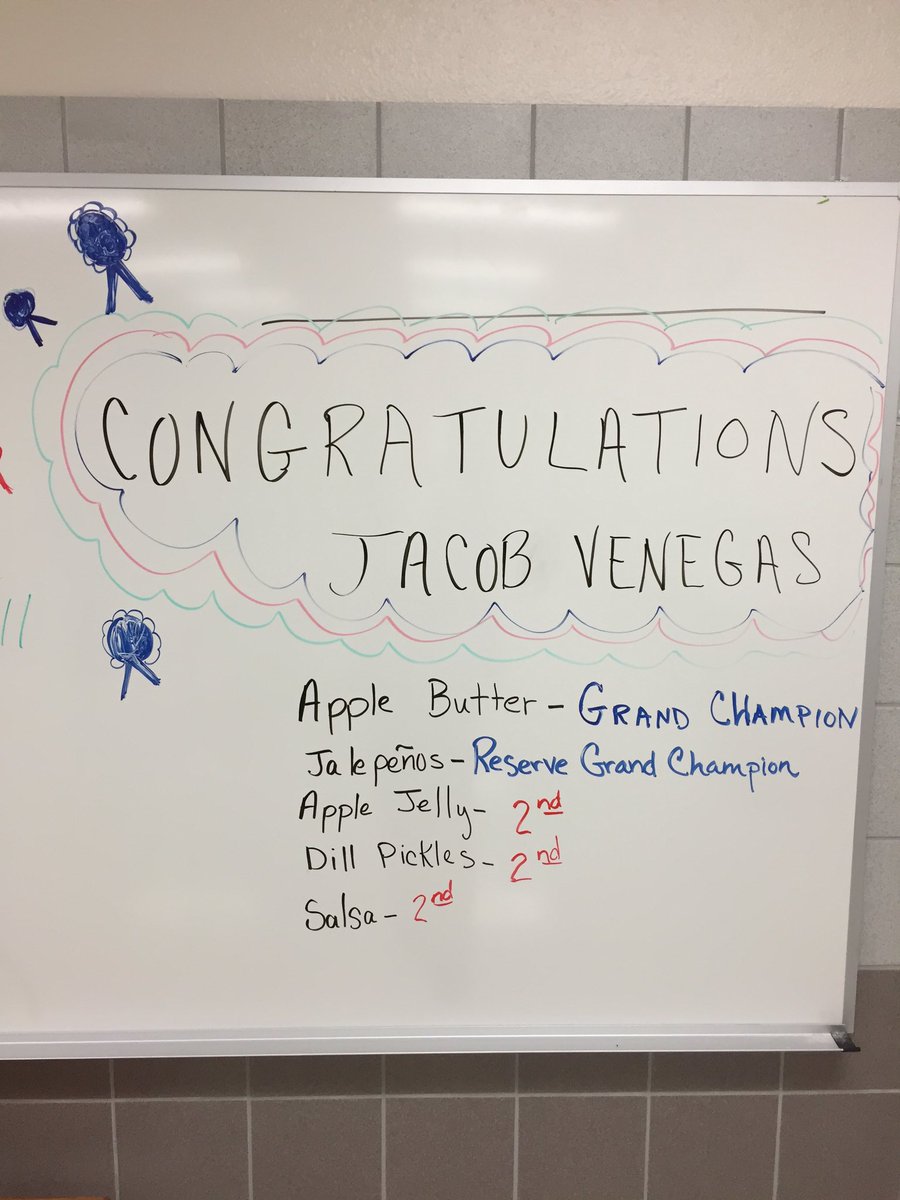 CONGRATULATIONS
JACOB VENEGAS
Apple Butter - GRAND CHAMPION
Jalepeños - Reserve Grand Champion
Apple Jelly - 2nd
Dill Pickles - 2nd
Salsa - 2nd